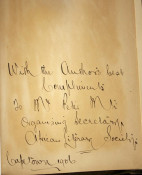 With the Author's best
Compliments
To Mr
Organising Secretary
African Literary Society
Cape town